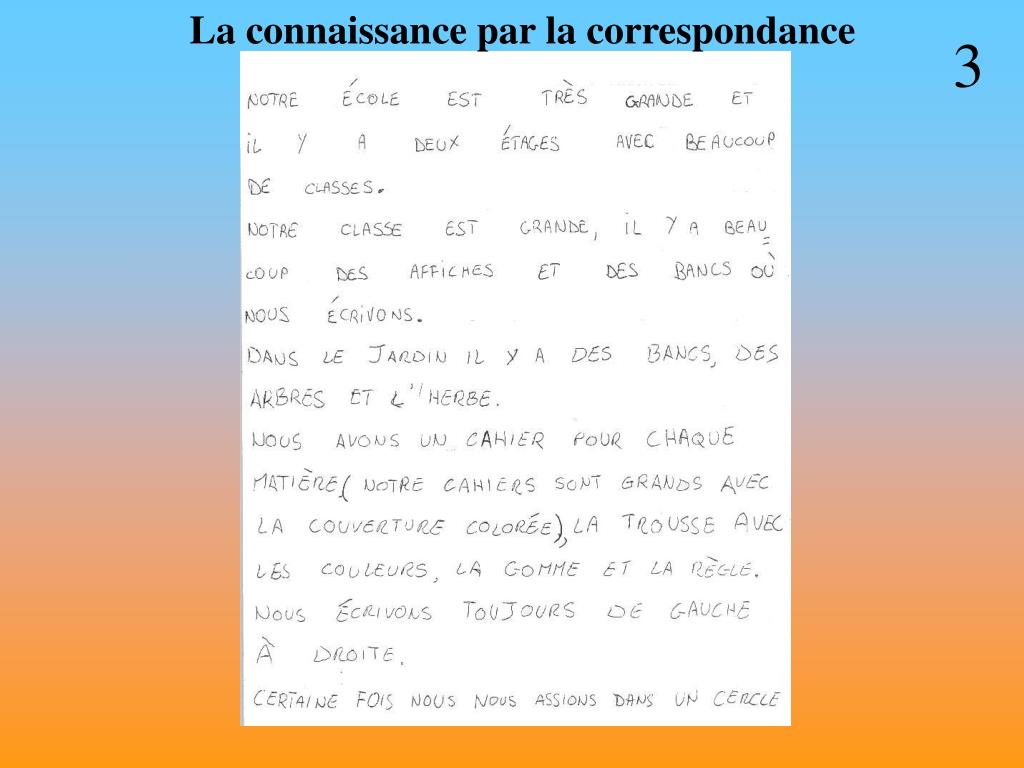 La connaissance par la correspondance
3
NOTRE ÉCOLE EST TRÈS GRANDE ET
IL Y A DEUX ÉTAGES AVEC BEAUCOUP
DE CLASSES.
NOTRE CLASSE EST GRANDE, IL Y A BEAU=
COUP DES AFFICHES ET DES BANCS OÙ
NOUS ÉCRIVONS.
DANS LE JARDIN IL Y A DES BANCS, DES
ARBRES ET L'HERBE.
NOUS AVONS UN CAHIER POUR CHAQUE
MATIÈRE( NOTRE CAHIERS SONT GRANDS AVEC
LA COUVERTURE COLORÉE), LA TROUSSE AVEC
LES COULEURS, LA GOMME ET LA RÈGLE.
NOUS ÉCRIVONS TOUJOURS DE GAUCHE
À DROITE.
CERTAINE FOIS NOUS NOUS ASSIONS DANS UN CERCLE